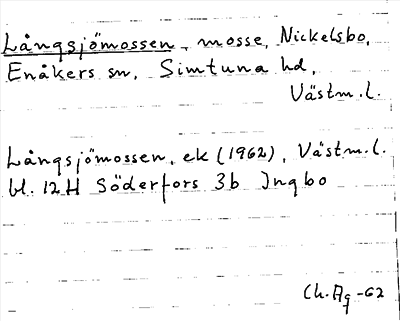 Långsjömossen, mosse, Nickelsbo,
Enåkers sn, Simtuna hd,
Västm.l.
Långsjömossen, ek (1962), Västm.l.
bl. 12H Söderfors 3b Ingbo
Ch.Ag -62